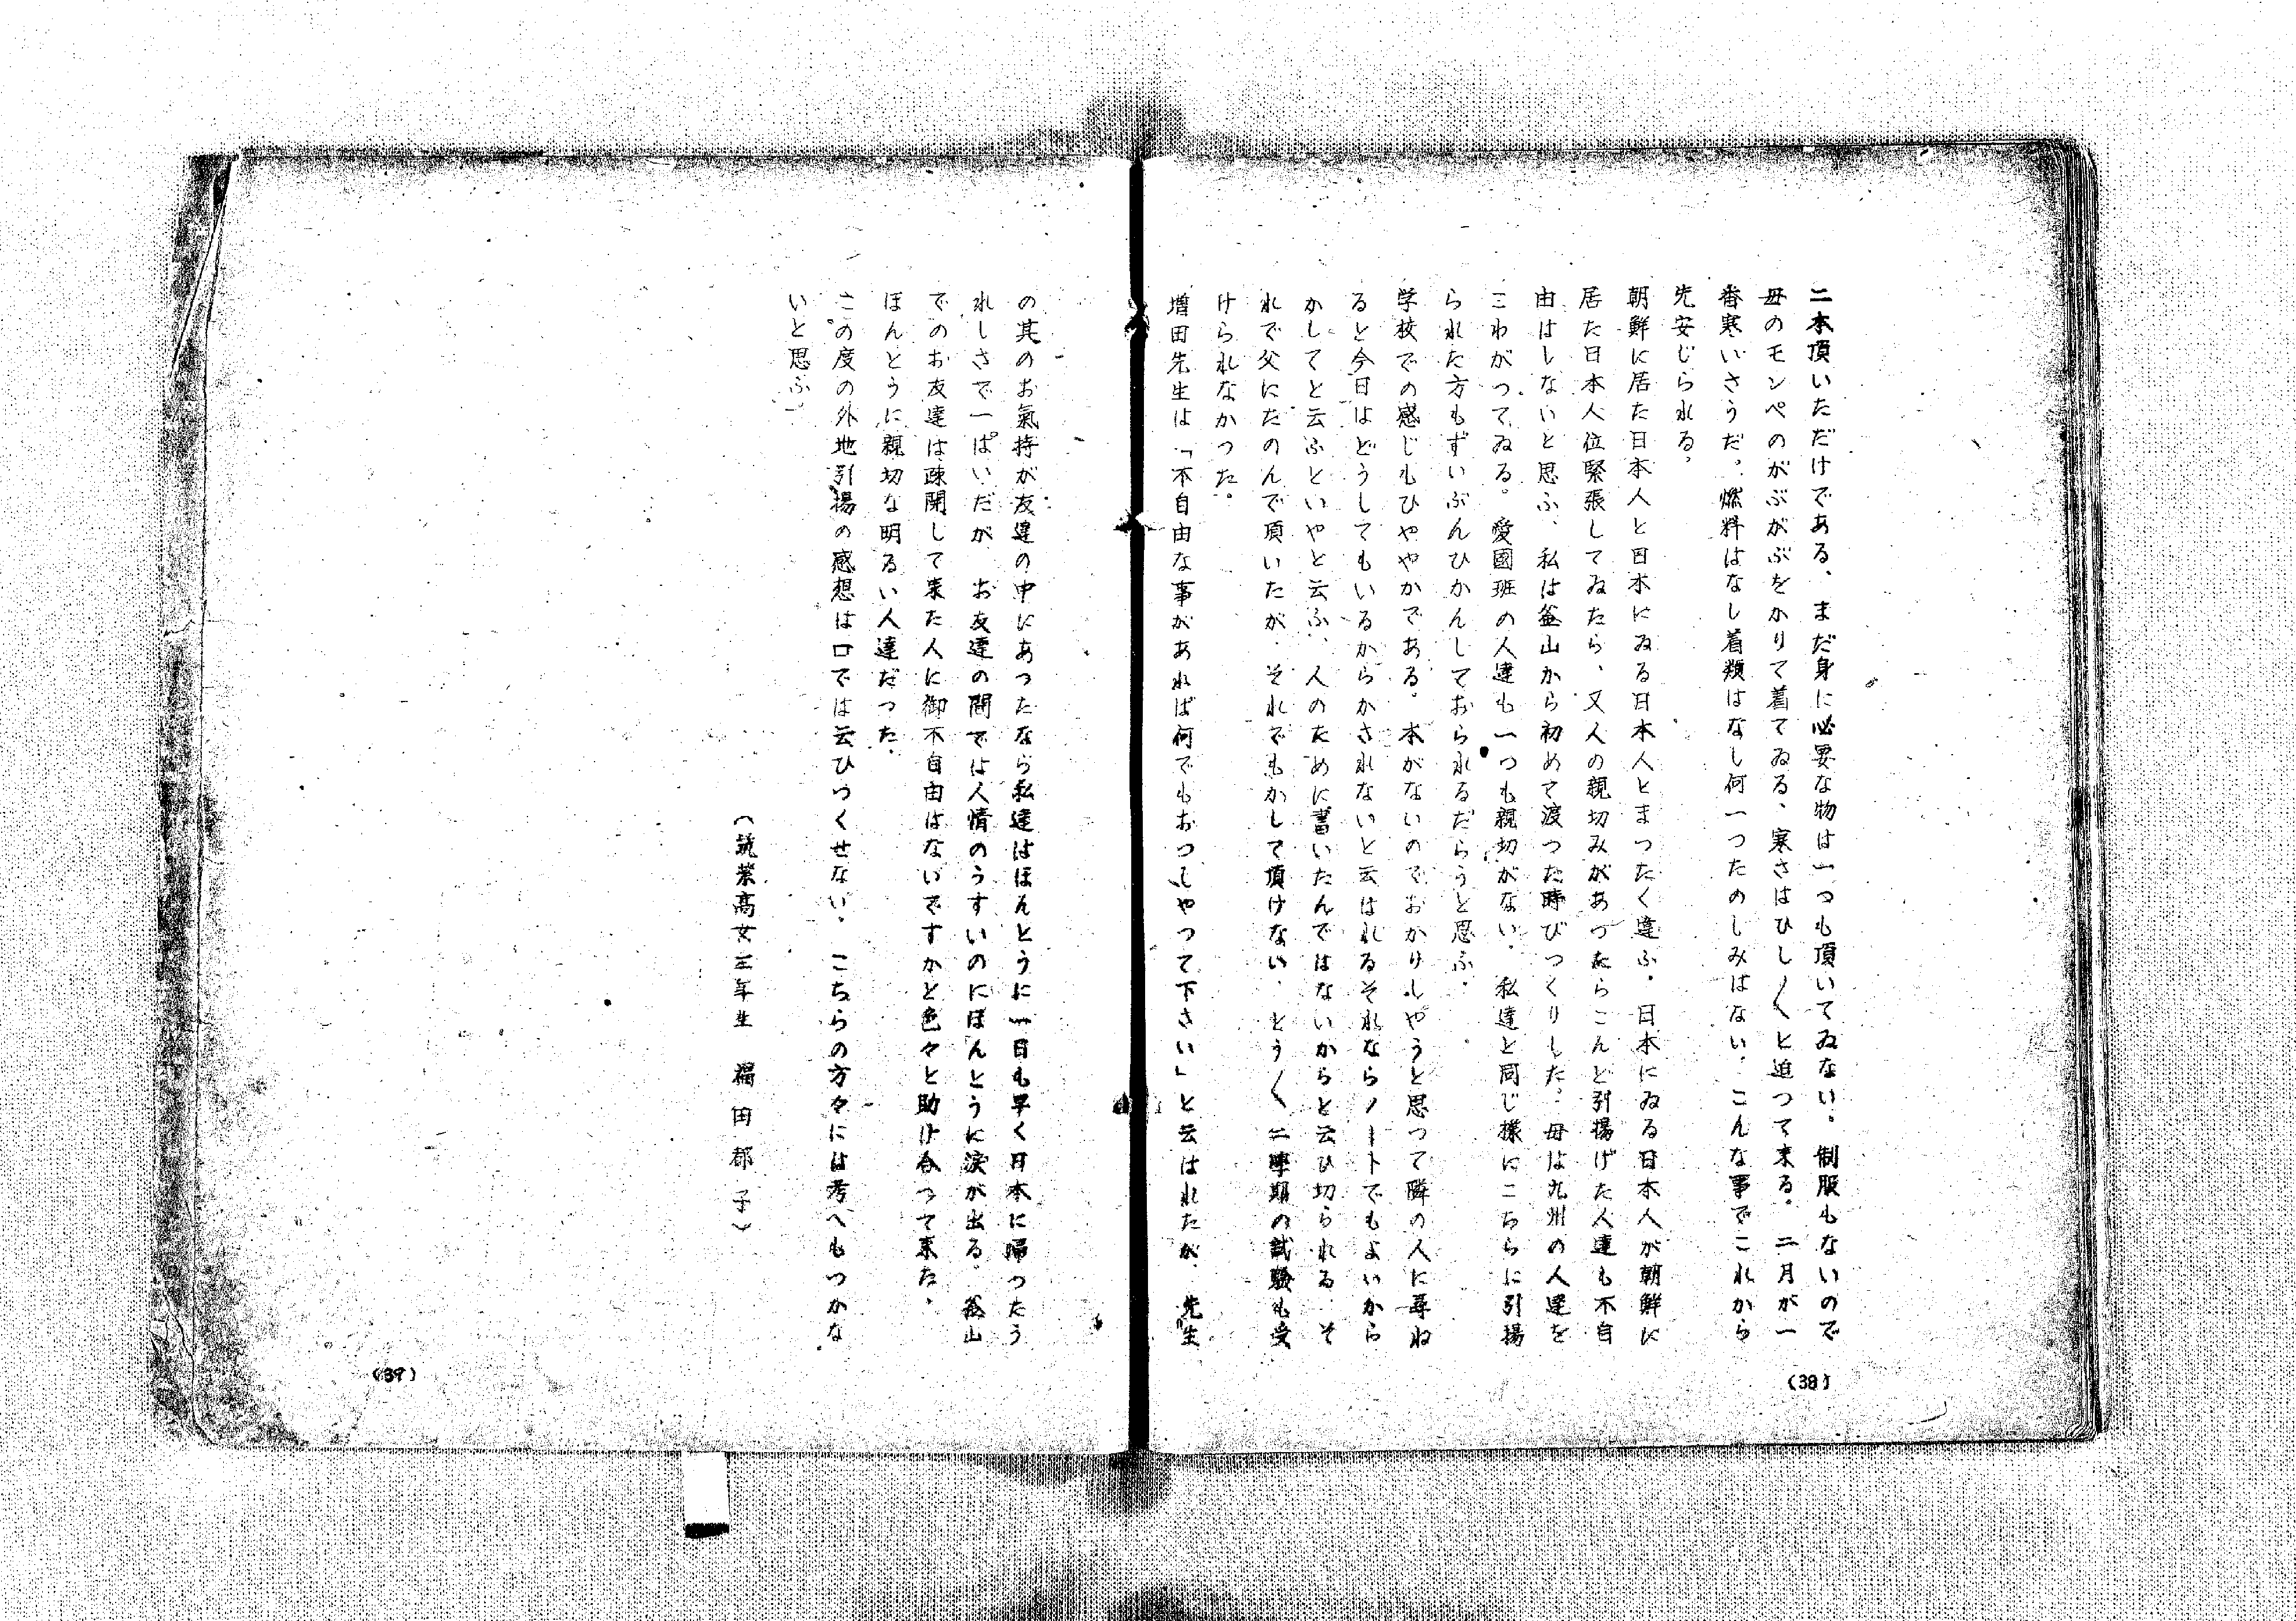 二本頂いただけである、まだ身に必要な物は一つも頂いてゐない。制服もないので
母のモンペのがぶがぶをかりて着てゐる、寒さはひし〳〵と迫つて来る。二月が一
番寒いさうだ。燃料はなし着類はなし何一つたのしみはない、こんな事でこれから
先安じられる。
朝鮮に居た日本人と日本にゐる日本人とまつたく違ふ。日本にゐる日本人が朝鮮に
居た日本人位緊張してゐたら、又人の親切みがあつたらこんど引揚げた人達も不自
由はしないと思ふ、私は釜山から初めて渡つた時びつくりした。母は九州の人達を
こわがつてゐる。愛國班の人達も一つも親切がない、私達と同じ様にこちらに引揚
られた方もずいぶんひかんしておられるだらうと思ふ。
学校での感じもひややかである。本がないのでおかりしやうと思つて隣の人に尋ね
ると今日はどうしてもいるからかされないと云はれるそれならノートでもよいから
かしてと云ふといやと云ふ、人のために書いたんではないからと云ひ切られる、そ
れで父にたのんで頂いたが、それでもかして頂けない、とう〳〵二學期の試験も受
けられなかつた。
増田先生は「不自由な事があれば何でもおつしやつて下さい」と云はれたが、先生
(38)
の其のお氣持が友達の中にあつたなら私達はほんとうに一日も早く日本に帰つたう
れしさで一ぱいだが、お友達の間では人情のうすいのにほんとうに涙が出る。釜山
でのお友達は疎開して来た人に御不自由はないですかと色々と助け合つて来た、
ほんとうに親切な明るい人達だつた、
この度の外地引揚の感想は口では云ひつくせない、こちらの方々には考へもつかな
いと思ふ。
(筑紫高女三年生　福田郁子)
(39)